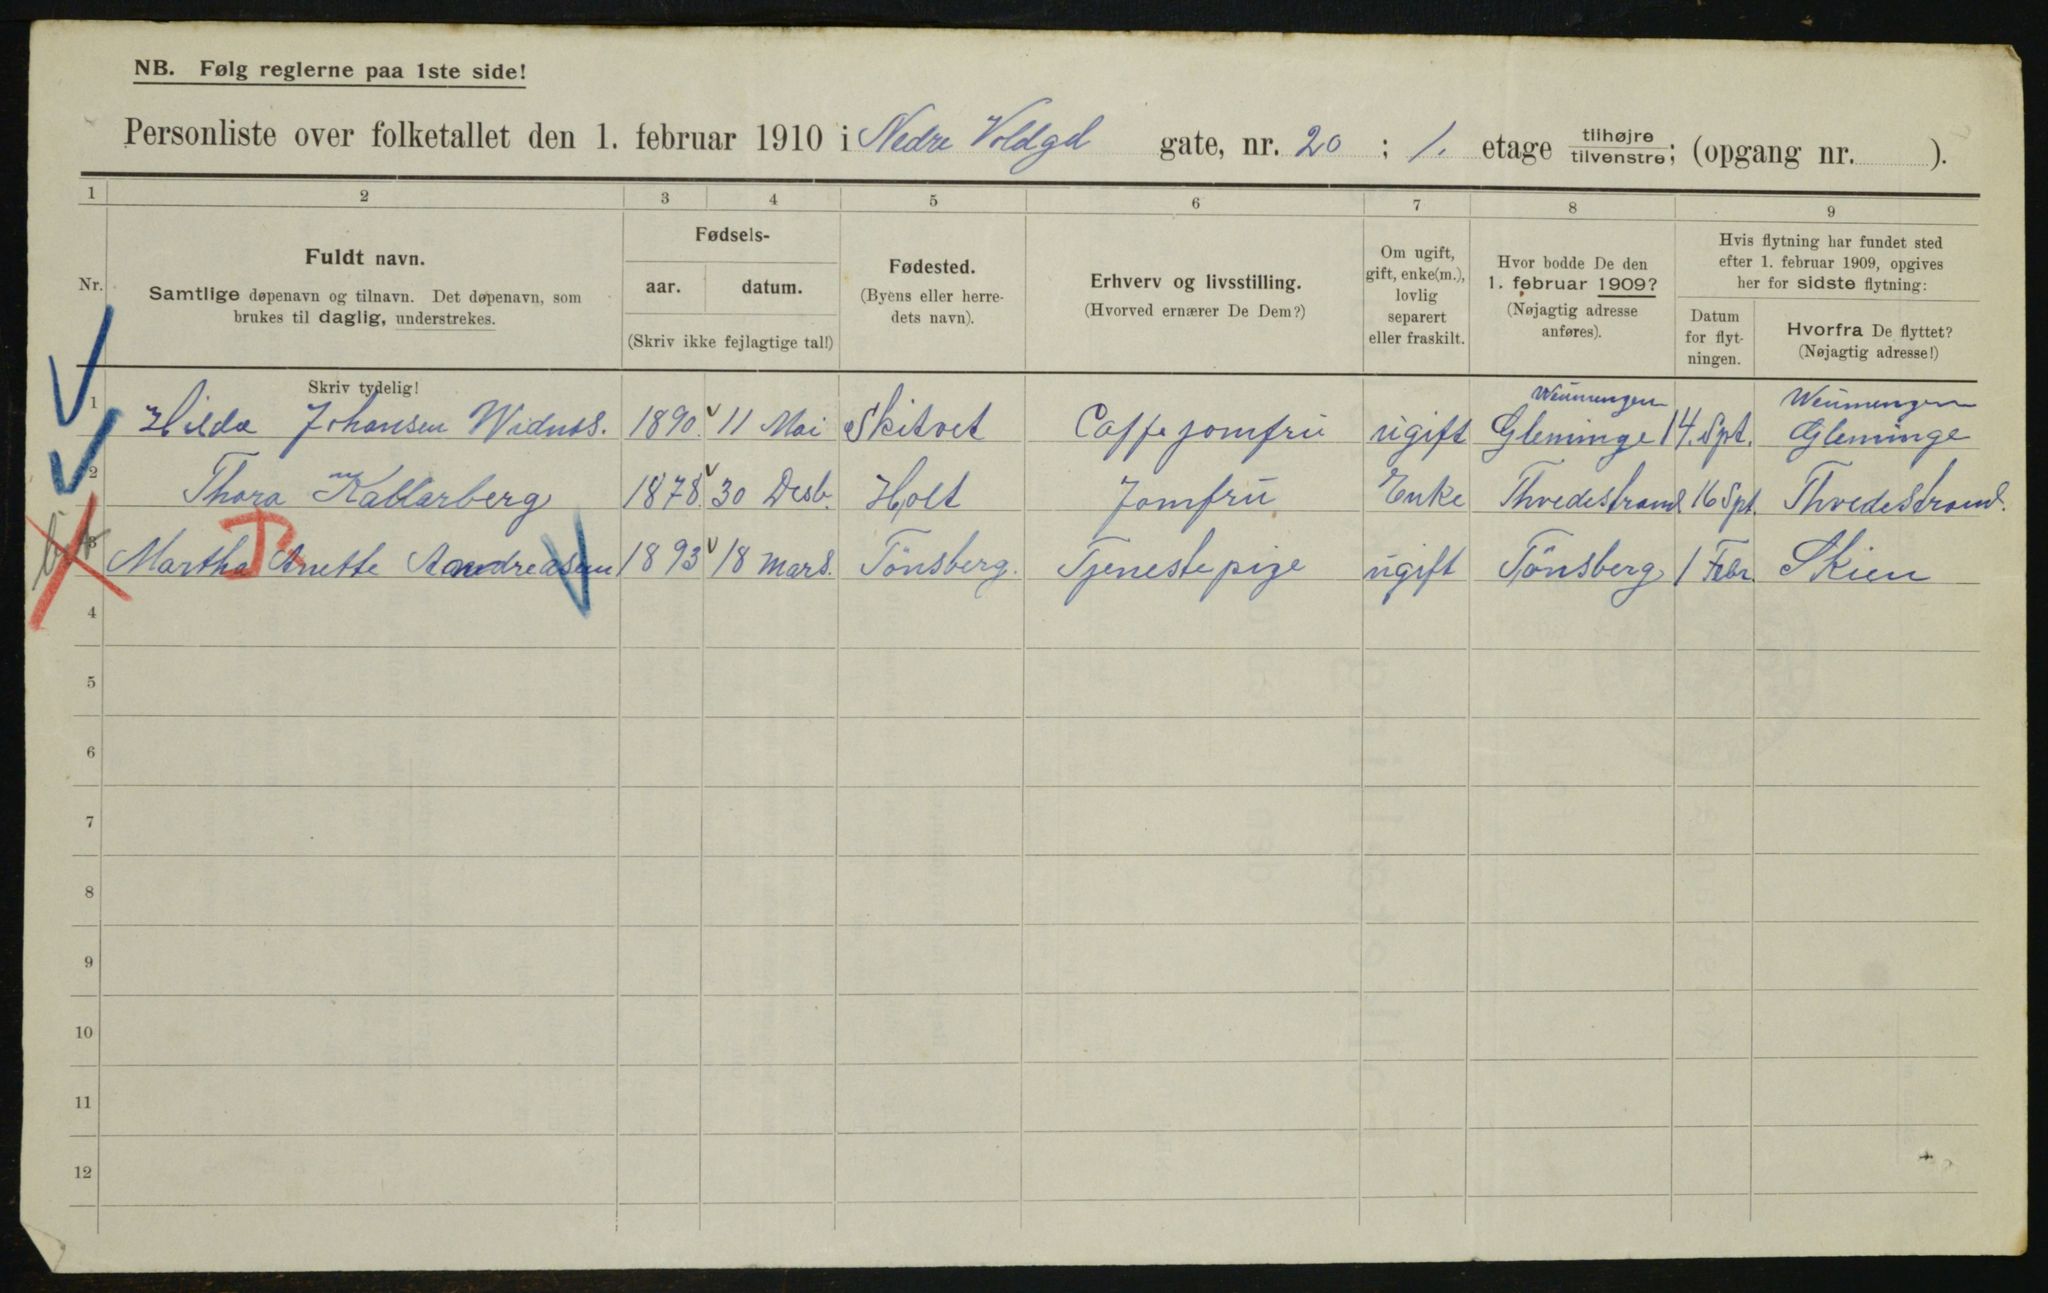 NB. Følg reglerne paa 1ste side!
Personliste over folketallet den 1. februar 1910 i Nedre Voldgd gate, nr. 20 ; 1. etage tilhøjre/tilvenstre; (opgang nr. ).
1 2 3 4 5 6 7 8 9
Nr.
Fuldt navn.
Samtlige døpenavn og tilnavn. Det døpenavn, som
brukes til daglig, understrekes.
Fødsels-
aar. datum.
(Skriv ikke fejlagtige tal!)
Fødested.
(Byens eller herre-
dets navn).
Erhverv og livsstilling.
(Hvorved ernærer De Dem?)
Om ugift,
gift, enke(m.),
lovlig
separert
eller fraskilt.
Hvor bodde De den
1. februar 1909?
(Nøjagtig adresse
anføres).
Hvis flytning har fundet sted
efter 1. februar 1909, opgives
her for sidste flytning:
Datum
for flyt-
ningen.
Hvorfra De flyttet?
(Nøjagtig adresse!)
Skriv tydelig!
1 Hilda Johansen 1890 11 Mai Skitvet Caffe jomfru ugift Gleminge 14. Spt. Gleminge
2 Thora Kallarberg 1878 30 Desb. Holt Jomfru Enke Thvedestrand 16 Spt. Thvedestrand.
3 Martha Anette Aandreasen 1893 18 Mars. Tönsberg. Tjenestepige ugift Tönsberg 1 Febr. Skien
4
5
6
7
8
9
10
11
12